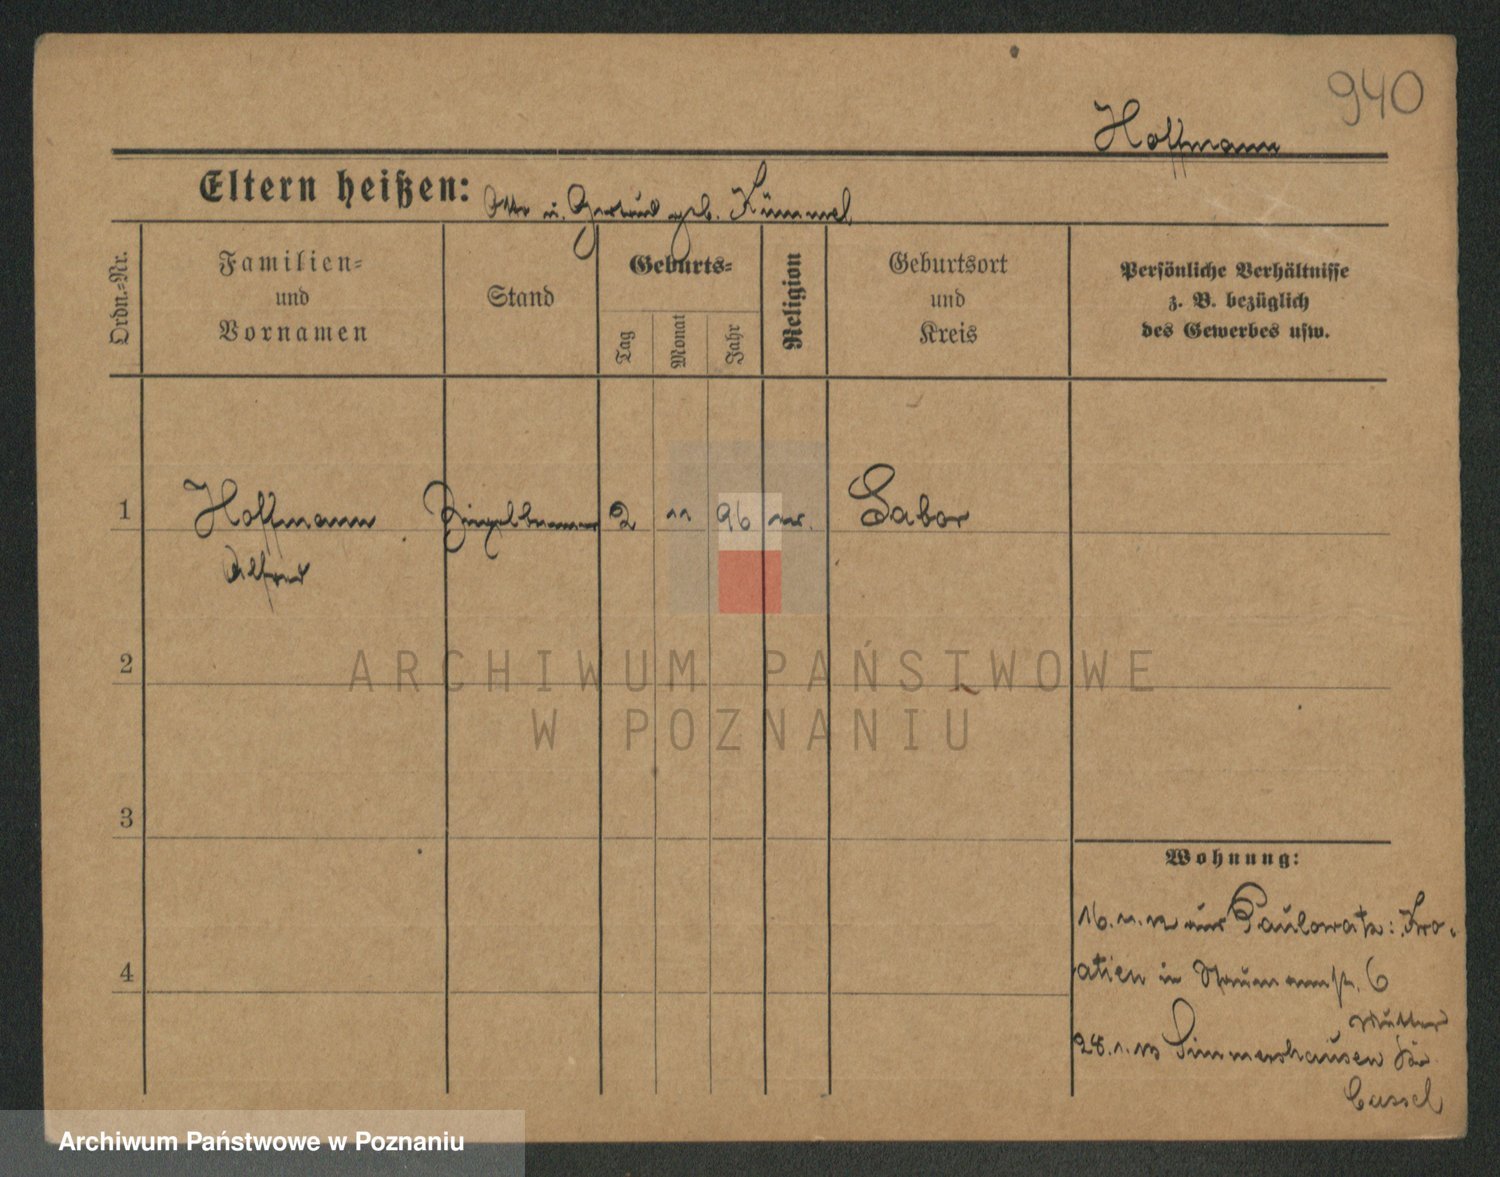 940
Hoffmann
Eltern heißen: Otto u. Gertrud geb. Kümmel
Ordn.=Nr.
Familien=
und
Vornamen
Stand
Geburts=
Tag
Monat
Jahr
Religion
Geburtsort
und
Kreis
Persönliche Verhältnisse
z. B. bezüglich
des Gewerbes usw.
1 Hoffmann 2 11 96 Sabor
Alfred
2
3
4
Wohnung:
16. 11. 12 aus Paulowatz: Kro-
atien in 6
Mutter
28. 1. 13 Simmershausen
Cassel
ARCHIWUM PAŃSTWOWE
W POZNANIU
Archiwum Państwowe w Poznaniu